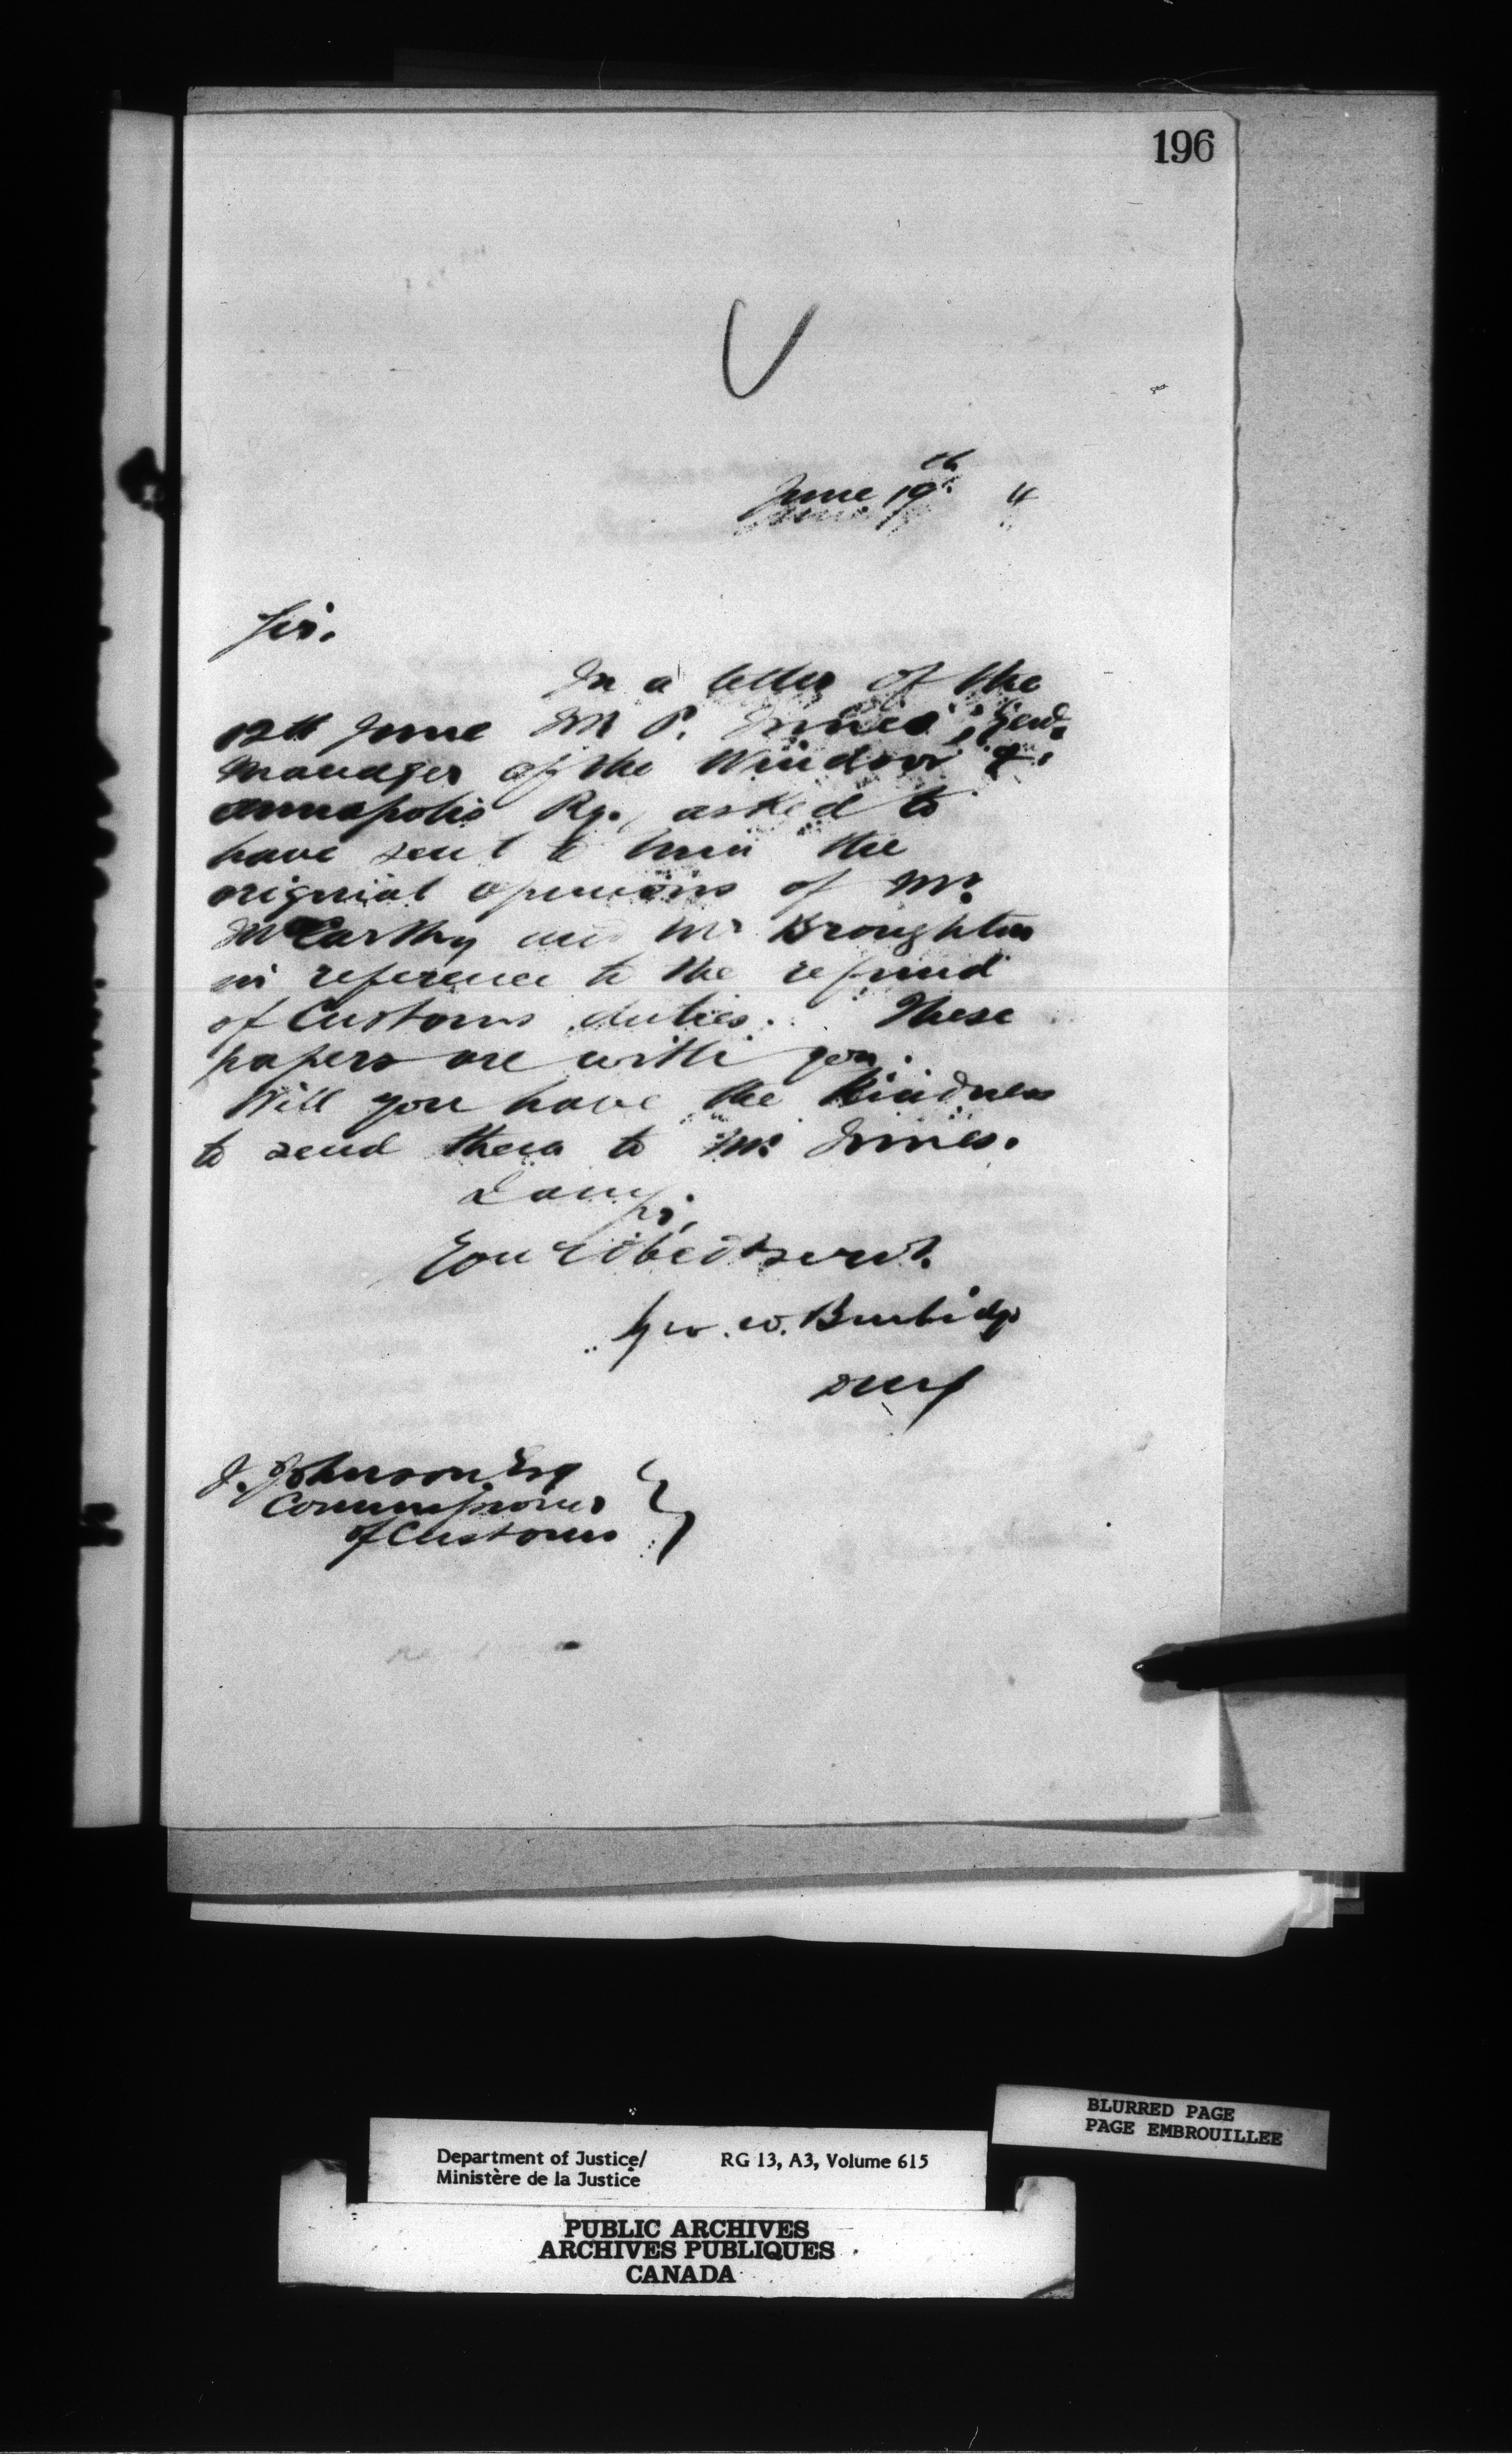 196
June 19th 4
Sir.
In a letter of the
12th June Mr P. Innes, Genl.
Manager of the Windsor &
Annapolis Ry., asked to
have sent to him the
original opinions of Mr.
McCarthy and Mr Broughton
in reference to the refund
of Customs duties. These
papers are with you.
Will you have the kindness
to send them to Mr Innes.
I am,
Sir,
Your obedt servt.
Geo. W. Burbidge
DMJ
J. Johnson Esq
Commissioner
of Customs
BLURRED PAGE
PAGE EMBROUILLEE
Department of Justice/ RG 13, A3, Volume 615
Ministère de la Justice
PUBLIC ARCHIVES
ARCHIVES PUBLIQUES
CANADA